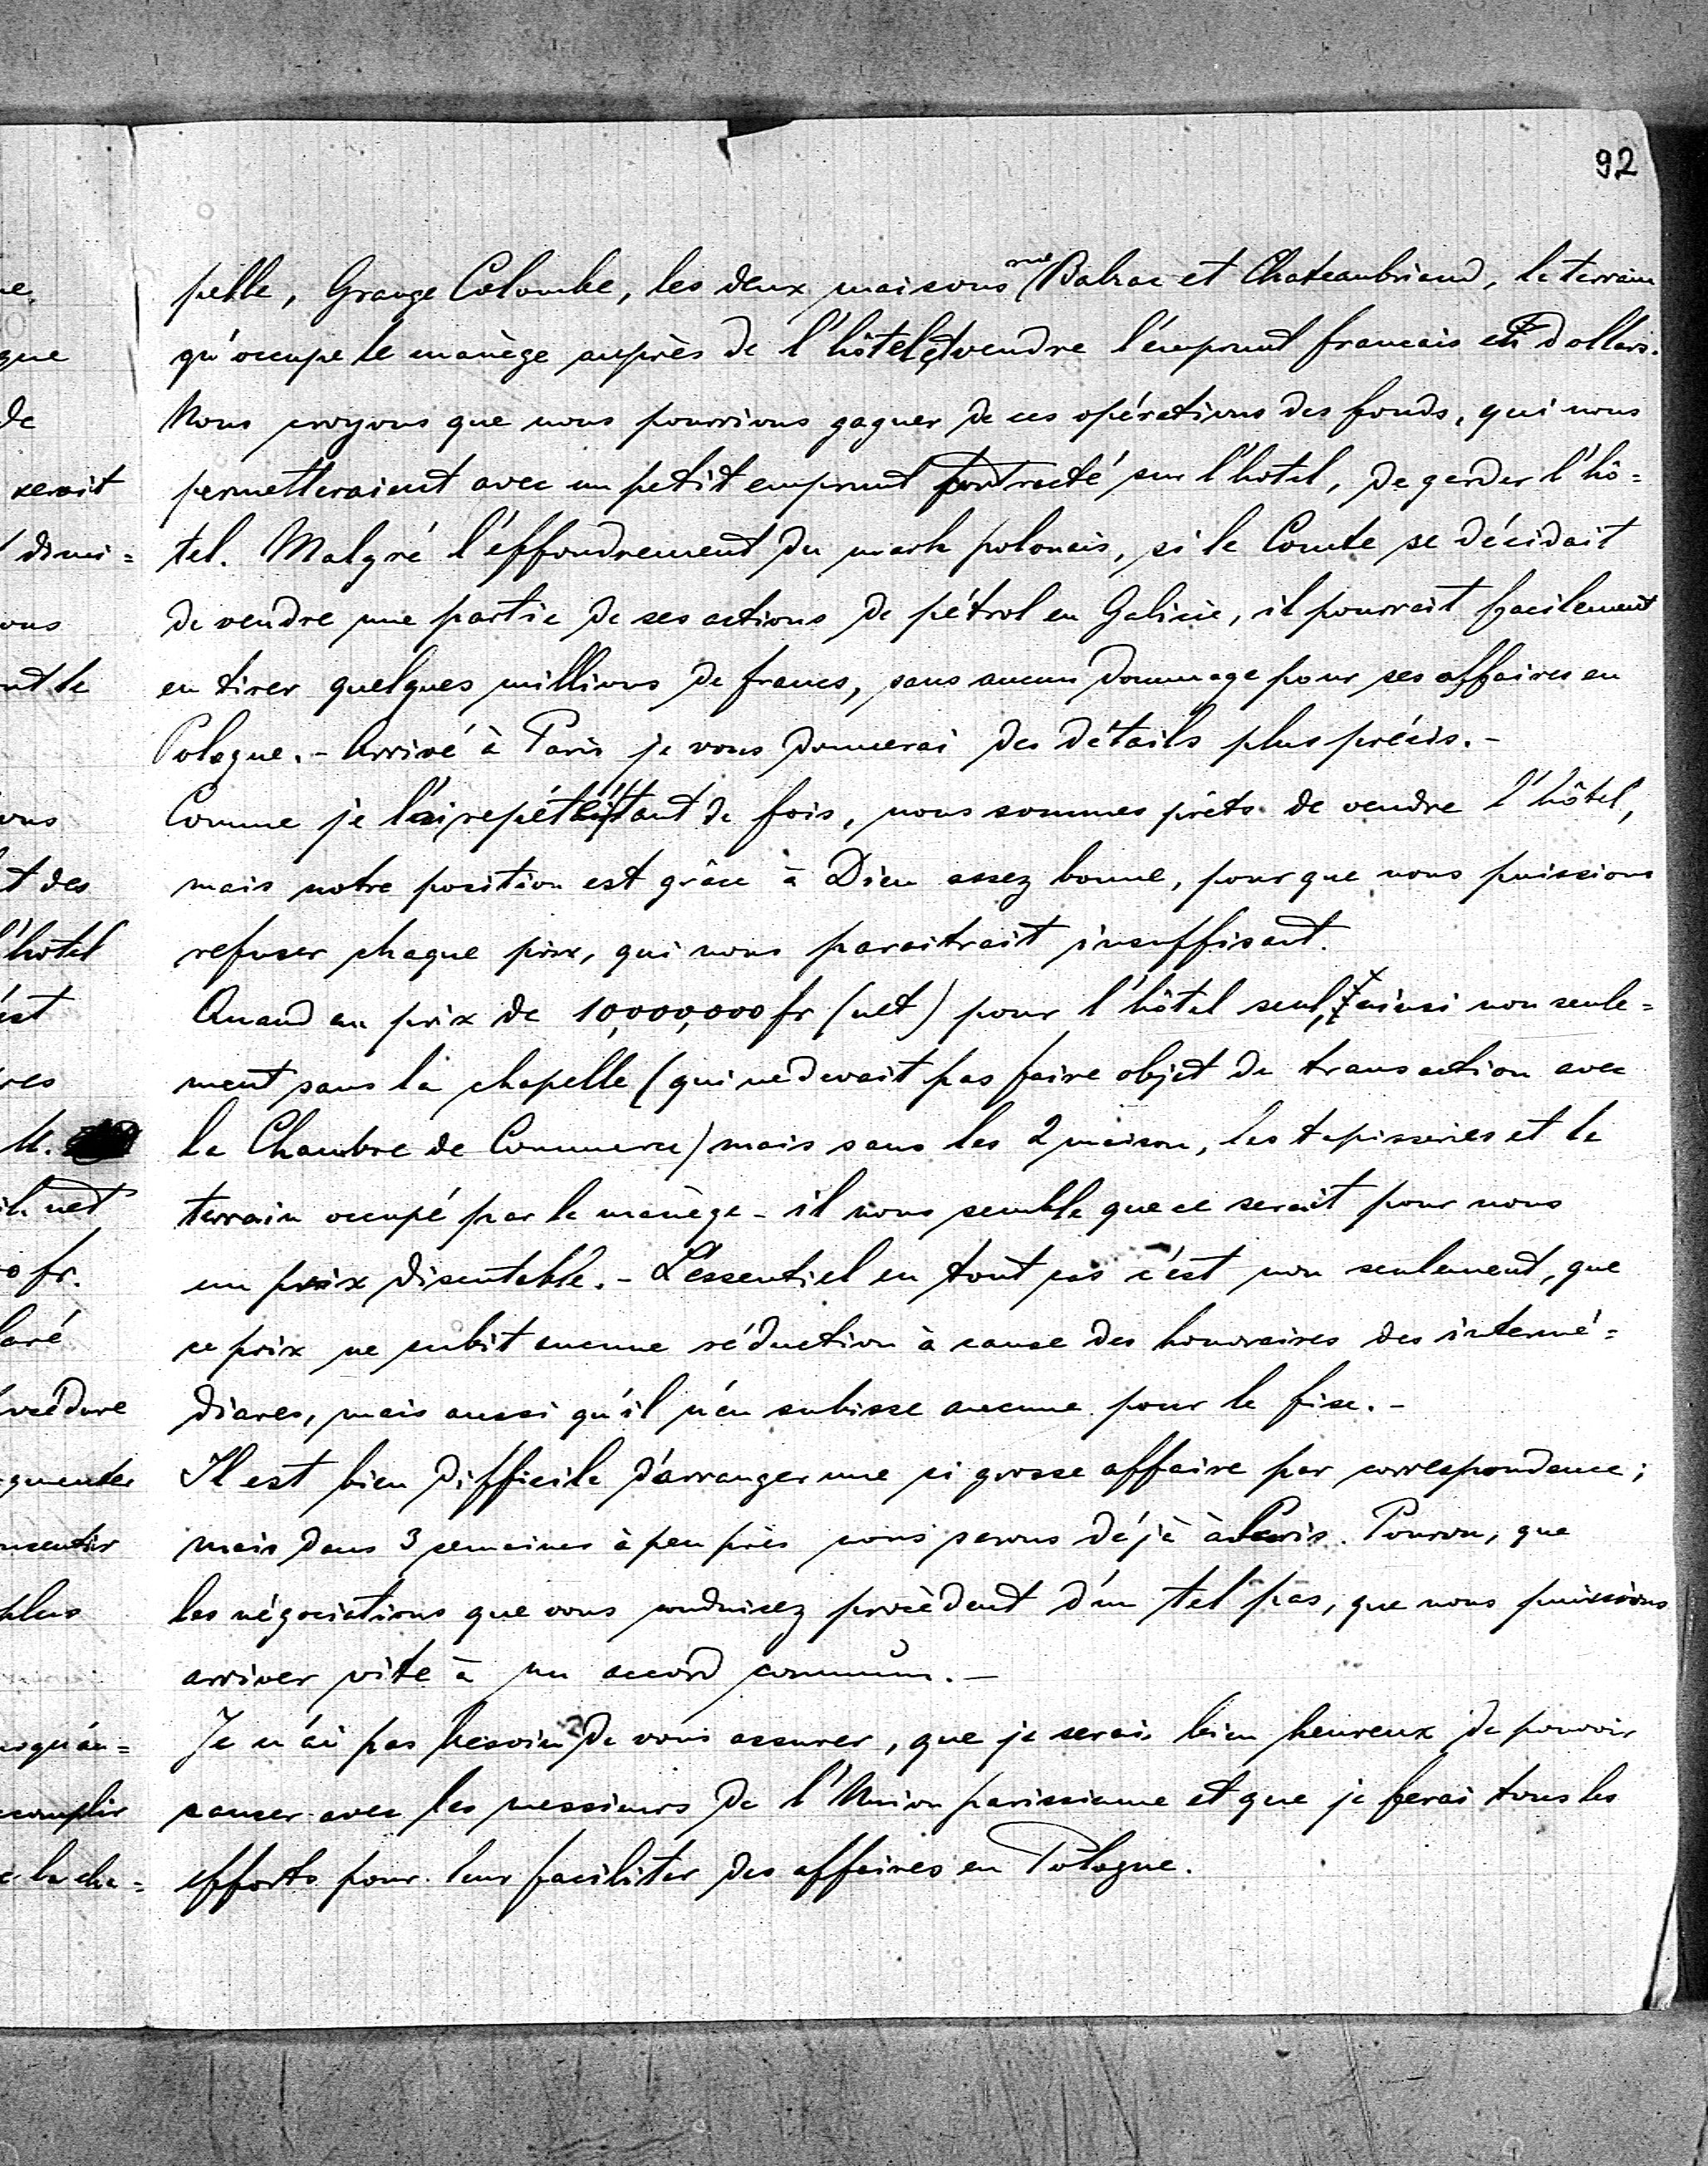 92
pelle, Grange Colombe, les deux maisons rue Balzac et Chateaubriand, le terrain
qu'occupe le manège auprès de l'hôtel et vendre l'emprunt francais en dollars.
Nous croyons que nous pourrions gagner de ces opérations des fonds, qui nous
permetteraient avec un petit emprunt contracté sur l'hôtel, de garder l'hô=
tel. Malgré l'éffondrement du mark polonais, si le Comte se décidait
de vendre une partie de ses actions de pétrol en Galicie, il pourrait facilement
en tirer quelques millions de francs, sans aucun dommage pour ses affaires en
Pologne. - Arrivé à Paris je vous donnerai des détails plus précis. -
Comme je l'ai repété tant de fois, nous sommes prêts de vendre l'hôtel,
mais notre position est grâce à Dieu assez bonne, pour que nous puissions
refuser chaque prix, qui nous paraitrait insuffisant.
Quand au prix de 10,000,000 fr (net) pour l'hôtel seul, ainsi non seule=
ment sans la chapelle (qui ne devait pas faire objet de transaction avec
la Chambre de Commerce) mais sans les 2 maison, les tapisseries et le
terrain occupé par le manège - il nous semble que ce serait pour nous
un prix discutable. - L'essentiel en tout cas c'est non seulement, que
ce prix ne subit aucune réduction à cause des honoraires des intermé=
diares, mais aussi qu'il n'en subisse aucune pour le fisc. -
Il est bien difficile d'arranger une si grosse affaire par correspondence;
mais dans 3 semaines à peu près nous serons déjà à Paris. Pourvu, que
les négociations que vous conduisez procèdent d'un tel pas, que nous puissions
arriver vite à un accord commun. -
Je n'ai pas besoin de vous assurer, que je serais bien heureux de pouvoir
causer avec les messieurs de l'Union parisienne et que je ferai tous les
efforts pour leur faciliter des affaires en Pologne.